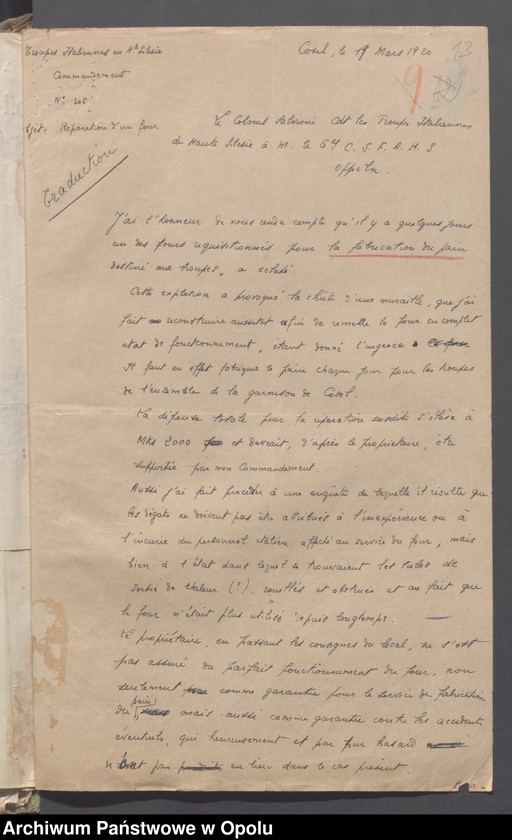 Troupes Italiennes en Hte Silésie
Commandement
N° 205
Objet : Réparation d'un four
Traduction
Cosel, le 19 Mars 1920
13
9
Le Colonel Salvioni Cdt les Troupes Italiennes
de Haute Silésie à M. le Gal C. S. F. A. H. S
Oppeln.
J'ai l'honneur de vous rendre compte qu'il y a quelques jours
un des fours réquisitionnés pour la fabrication du pain
destiné aux troupes, a éclaté.
Cette explosion a provoqué la chute d'une muraille, que j'ai
fait reconstruire aussitôt afin de remettre le four en complet
état de fonctionnement, étant donné l'urgence
Il faut en effet fabriquer le pain chaque jour pour les troupes
de l'ensemble de la garnison de Cosel.
La dépense totale pour la réparation susdite s'élève à
Mks 2000 et devrait, d'après le propriétaire, être
supportée par mon Commandement.
Aussi j'ai fait procéder à une enquête de laquelle il résulte que
les dégâts ne doivent pas être attribués à l'inexpérience ou à
l'incurie du personnel italien affecté au service du four, mais
bien à l'état dans lequel se trouvaient les tubes de
sortie de chaleur (?), rouillés et obstrués et au fait que
le four n'était plus utilisé depuis longtemps.
Le propriétaire, en passant les consignes du local, ne s'est
pas assuré du parfait fonctionnement du four, non
seulement comme garantie pour le service de fabrication
du pain, mais aussi comme garantie contre les accidents
éventuels, qui heureusement et par pur hasard
n'ont pas eu lieu dans le cas présent.